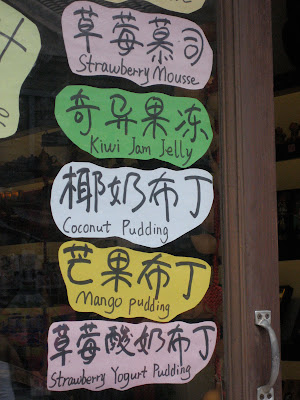 草莓慕司
Strawberry Mousse
奇异果冻
Kiwi Jam Jelly
椰奶布丁
Coconut Pudding
芒果布丁
Mango pudding
草莓酸奶布丁
Strawberry Yogurt Pudding